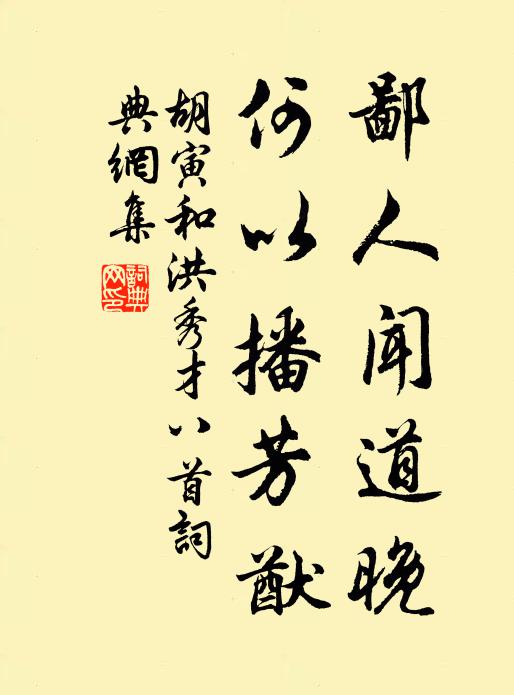 鄙人聞道晚
何以播芳猷
胡寅和洪秀才八首詞
典網集
詞典網印